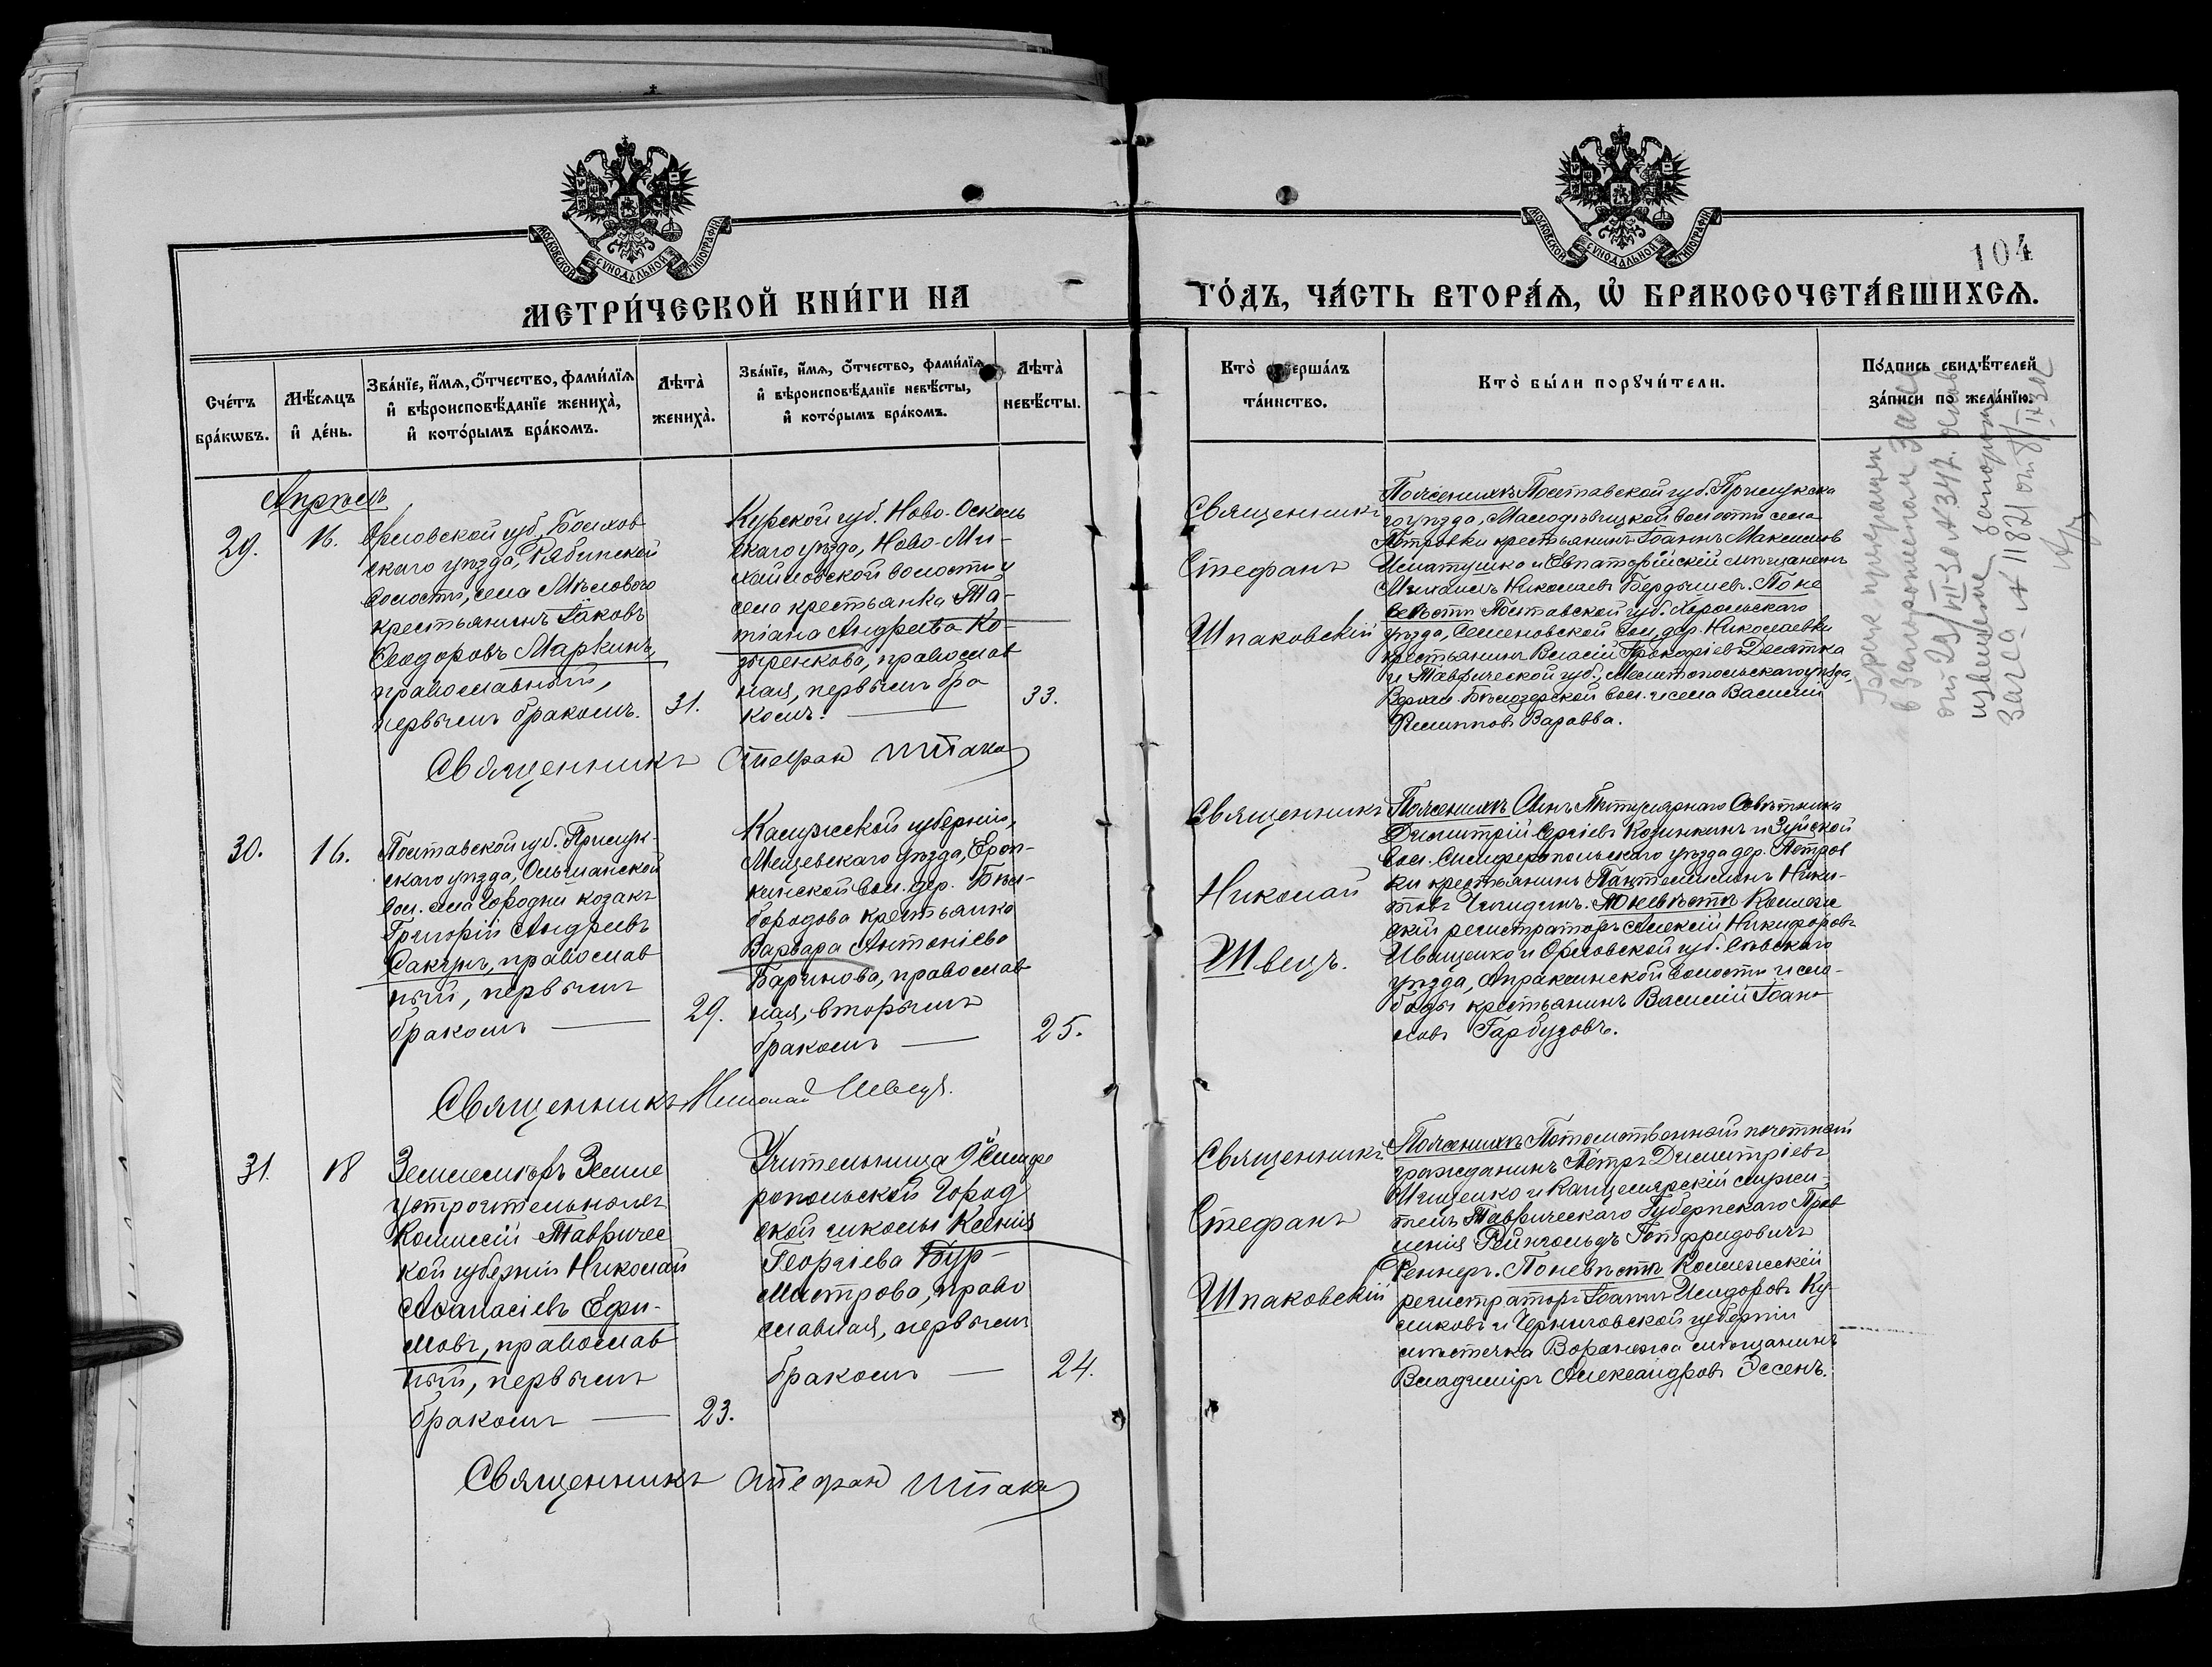 104
МОСКОВСКОЙ СУНОДАЛЬНОЙ ТИПОГРАФІИ
МОСКОВСКОЙ СУНОДАЛЬНОЙ ТИПОГРАФІИ
МЕТРИ́ЧЕСКОЙ КНИ́ГИ НА
ГО́ДЪ, ЧА́СТЬ ВТОРА́Ѧ, Ѽ БРАКОСОЧЕТА́ВШИХСѦ.
Сче́тъ
бра́кѡвъ.
Мѣ́сѧцъ
и҆ де́нь.
Зва́нїе, и҆́мѧ, ѻ҆́тчество, фами́лїѧ
и҆ вѣроисповѣ́данїе жениха̀,
и҆ кото́рымъ бра́комъ.
Лѣта̀
жениха̀.
Зва́нїе, и҆́мѧ, ѻ҆́тчество, фами́лїѧ
и҆ вѣроисповѣ́данїе невѣ́сты,
и҆ кото́рымъ бра́комъ.
Лѣта̀
невѣ́сты.
Кто̀ соверша́лъ
та́инство.
Кто̀ бы́ли порꙋчи́тели.
По́дпись свидѣ́телей
за́писи по жела́нїю.
Апрѣль
29.
16.
Орловской губ., Болхов
скаго уѣзда, Рябинской
волости, села Мѣлового
крестьянинъ Іаковъ
Ѳеодоровъ Маркинъ,
православный,
первымъ бракомъ.
31.
Курской губ. Ново-Осколь
скаго уѣзда, Ново-Ми-
хайловской волости и
села крестьянка Та-
тіана Андреева Ко-
зыренкова, православ
ная, первымъ бра
комъ.
33.
Священникъ
Стефанъ
Шпаковскій
По женихѣ Полтавской губ. Прилукска
го уѣзда, Малодѣвицкой волости села
Петровки крестьянинъ Іоаннъ Максимов
Игнатушко и Евпаторійскій мѣщанинъ
Михаилъ Николаевъ Бердышевъ. По не
вѣстѣ Полтавской губ. Хорольскаго
уѣзда, Семеновской вол., дер. Николаевки
крестьянинъ Власій Прокофіевъ Десятка
и Таврической губ., Мелитопольскаго уѣзда,
Верхн. Бѣлозерской вол. и села Василій
Филипповъ Варавва.
Брак прекращен
в Запорожском Загсе
от 29/VIII-30 № 347. основ
извещение Запорож
Загса № 11821 от 8/IX 30г
Священникъ Стефан Шпако
30.
16.
Полтавской губ. Прилук-
скаго уѣзда, Ольшанской
вол. села Городни козакъ
Григорій Андреевъ
Сакунъ, православ
ный, первымъ
бракомъ
29.
Калужской губерніи,
Мещевскаго уѣзда, Ероп-
кинской вол. дер. Бѣл-
бородова крестьянка
Варвара Антоніева
Баринова, православ
ная, вторымъ
бракомъ
25.
Священникъ
Николай
Швецъ.
По женихѣ Сынъ Титулярнаго Совѣтника
Димитрій Сергіевъ Козинкинъ и Зуйской
вол. Симферопольскаго уѣзда дер. Петров
ки крестьянинъ Пантелеимонъ Ники-
товъ Чигидинъ. По невѣстѣ Коллеж
скій регистраторъ Алексій Никифоровъ
Иващенко и Орловской губ. Сѣвскаго
уѣзда, Апраксинской волости и сло-
боды крестьянинъ Василій Іоан-
новъ Гарбузовъ.
Священникъ Николай Швецъ.
31.
18
Землемѣръ Земле
устроительныхъ
Комиссій Тавричес
кой губерніи Николай
Аѳанасіевъ Ефи-
мовъ, православ
ный, первымъ
бракомъ
23.
Учительница 9й Симфе
ропольской Город
ской школы Ксенія
Георгіева Бур-
мистрова, право
славная, первымъ
бракомъ
24.
Священникъ
Стефанъ
Шпаковскій
По женихѣ Потомственный почетный
гражданинъ Петръ Димитріевъ
Мищенко и Канцелярскій служи-
тель Таврическаго Губернскаго Прав
ленія Рейнгольдъ Готфридовичъ
Реннеръ. По невѣстѣ Коллежскій
регистраторъ Іоаннъ Исидоровъ Ку-
ликовъ и Черниговской губерніи
мѣстечка Воронежа мѣщанинъ
Владиміръ Александровъ Эссенъ.
Священникъ Стефан Шпако